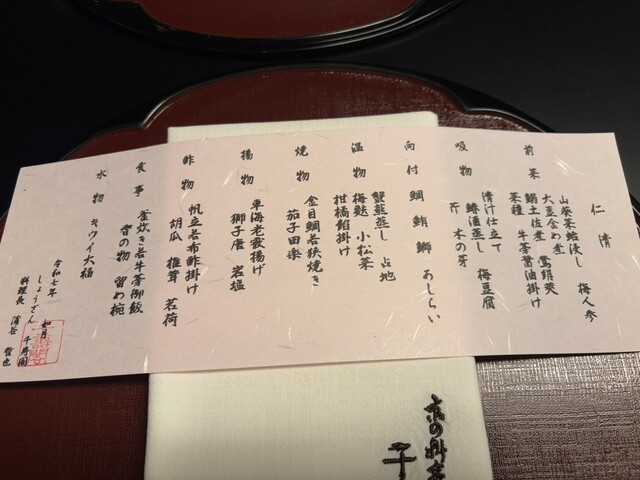 仁清
前菜
山葵菜粕浸し 梅人参
大豆含め煮 鶯絹莢
鰯土佐煮
菜種 牛蒡醤油掛け
吸物
清汁仕立て 梅豆腐
鰆酒蒸し
芹 木の芽
向付 鯛 鮪 鰤 あしらい
温物
蟹蕪蒸し 占地
梅麩 小松菜
柑橘餡掛け
焼物
金目鯛若狭焼き
茄子田楽
揚物
車海老霰揚げ
獅子唐 岩塩
酢物
帆立若布酢掛け
胡瓜 椎茸 茗荷
食事
釜炊き若牛蒡御飯
香の物 留め椀
水物 キウイ大福
令和七年 如月
しょうざん 千寿閣
料理長
哲也
京の料亭
千